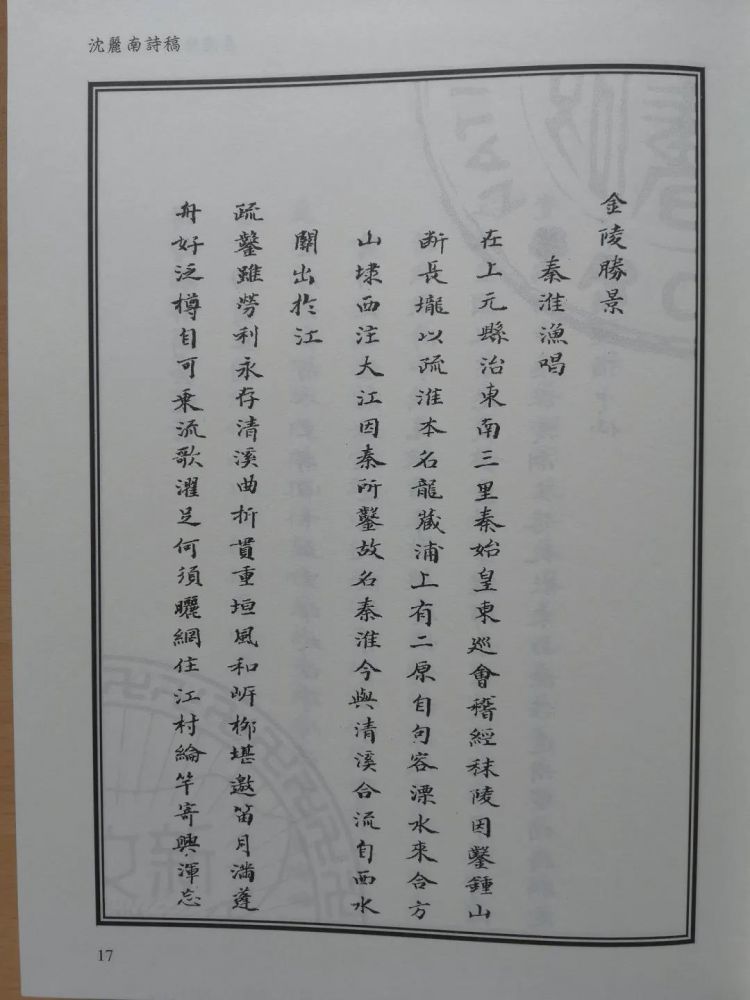 沈麗南詩稿
金陵勝景
秦淮漁唱
在上元縣治東南三里秦始皇東巡會稽經秣陵因鑿鍾山
斷長壠以疏淮本名龍藏浦上有二原自句容溧水來合方
山埭西注大江因秦所鑿故名秦淮今與清溪合流自西水
關出於江
疏鑿雖勞利永存清溪曲折貫重垣風和岍柳堪邀笛月滿蓬
舟好泛樽自可乘流歌濯足何須曬網住江村綸竿寄興渾忘
17